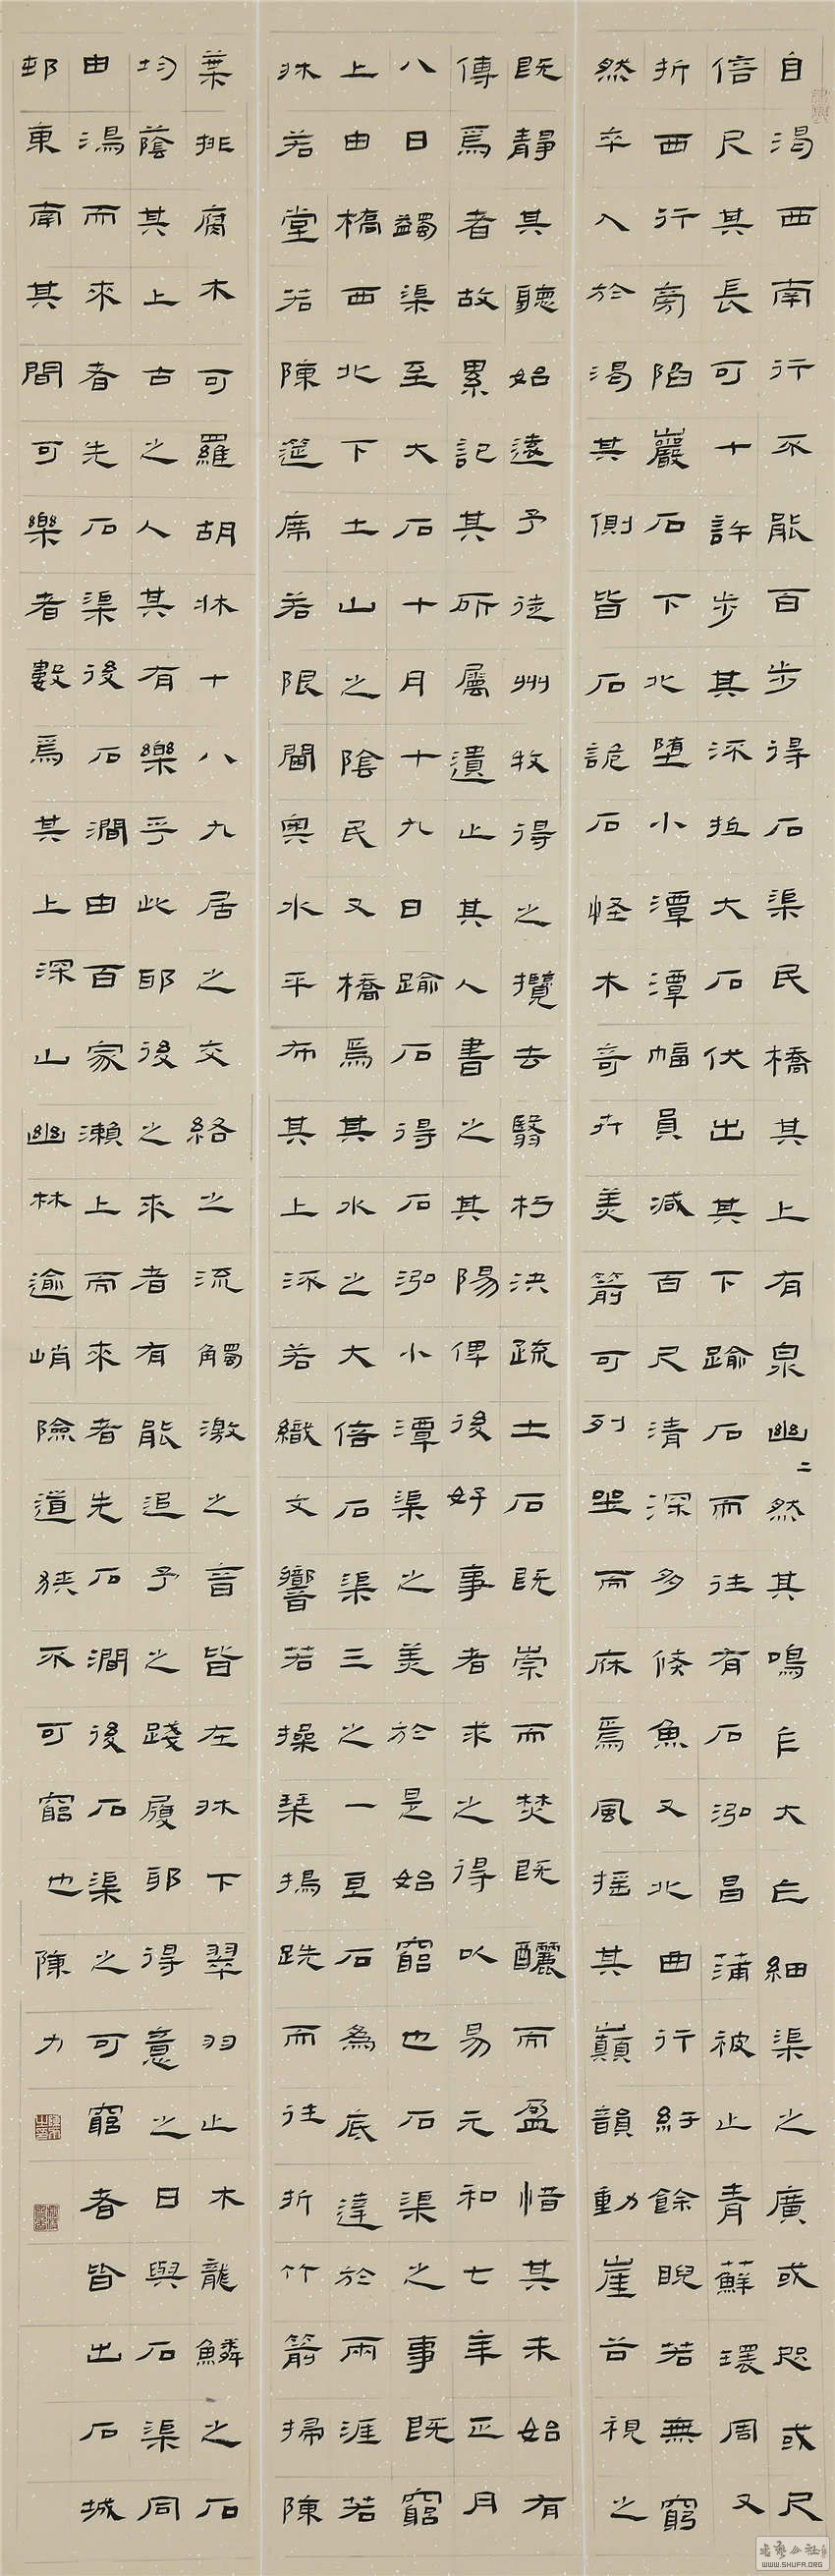 自渴西南行不能百步得石渠民橋其上有泉幽二然其鳴乍大乍細渠之廣或咫或尺
倍尺其長可十許步其流抵大石伏出其下踰石而往有石泓昌蒲被之青蘚環周又
折西行旁陷巖石下北墮小潭潭幅員減百尺清深多倏魚又北曲行紆餘睨若無窮
然卒入於渴其側皆石詭石怪木奇卉美箭可列坐而庥焉風搖其巔韻動崖谷視之
既靜其聽始遠予從州牧得之攬去翳朽決疏土石既崇而焚既釃而盈惜其未始有
傳焉者故累記其所屬遺之其人書之其陽俾後好事者求之得以易元和七年正月
八日蠲渠至大石十月十九日踰石得石泓小潭渠之美於是始窮也石渠之事既窮
上由橋西北下土山之陰民又橋焉其水之大倍石渠三之一亘石為底達於兩涯若
牀若堂若陳筵席若限閫奧水平布其上流若織文響若操琴揭跣而往折竹箭掃陳
葉排腐木可羅胡牀十八九居之交絡之流觸激之音皆在牀下翠羽之木龍鱗之石
均蔭其上古之人其有樂乎此耶後之來者有能追予之踐履耶得意之日與石渠同
由渴而來者先石渠後石澗由百家瀨上而來者先石澗後石渠之可窮者皆出石城
邨東南其間可樂者數焉其上深山幽林逾峭險道狹不可窮也陳力
WWW.SHUFA.ORG